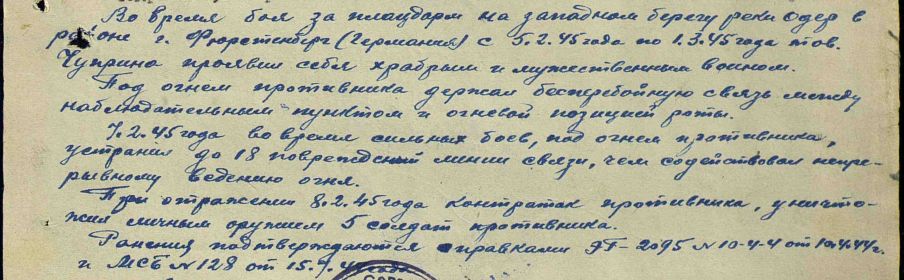 Во время боя за плацдарм на западном берегу реки Одер в
районе г. Фюрстенберг (Германия) с 5.2.45 года по 1.3.45 года тов.
Чуприна проявил себя храбрым и мужественным воином.
Под огнем противника держал бесперебойную связь между
наблюдательным пунктом и огневой позицией роты.
7.2.45 года во время сильных боев, под огнем противника,
устранил до 18 повреждений линии связи, чем содействовал непре-
рывному ведению огня.
При отражении 8.2.45 года контратак противника, уничто-
жил личным оружием 5 солдат противника.
Ранения подтверждаются справками ЭГ-2095 №10-4-4 от 10.4.44г.
и МСБ №128 от 15.7.